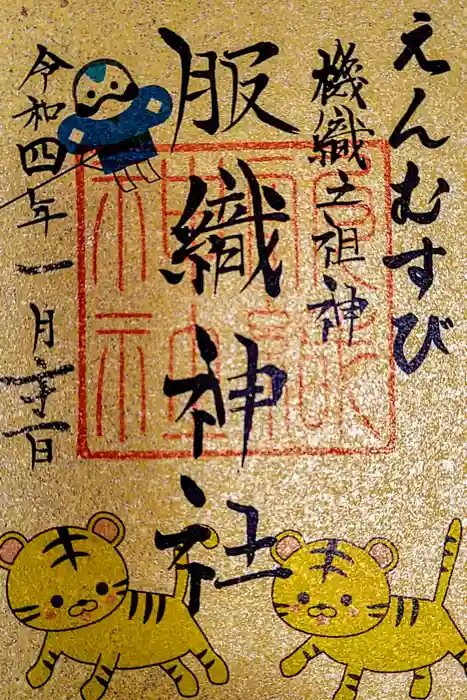 えんむすび
機織之祖神
服織神社
令和四年一月日